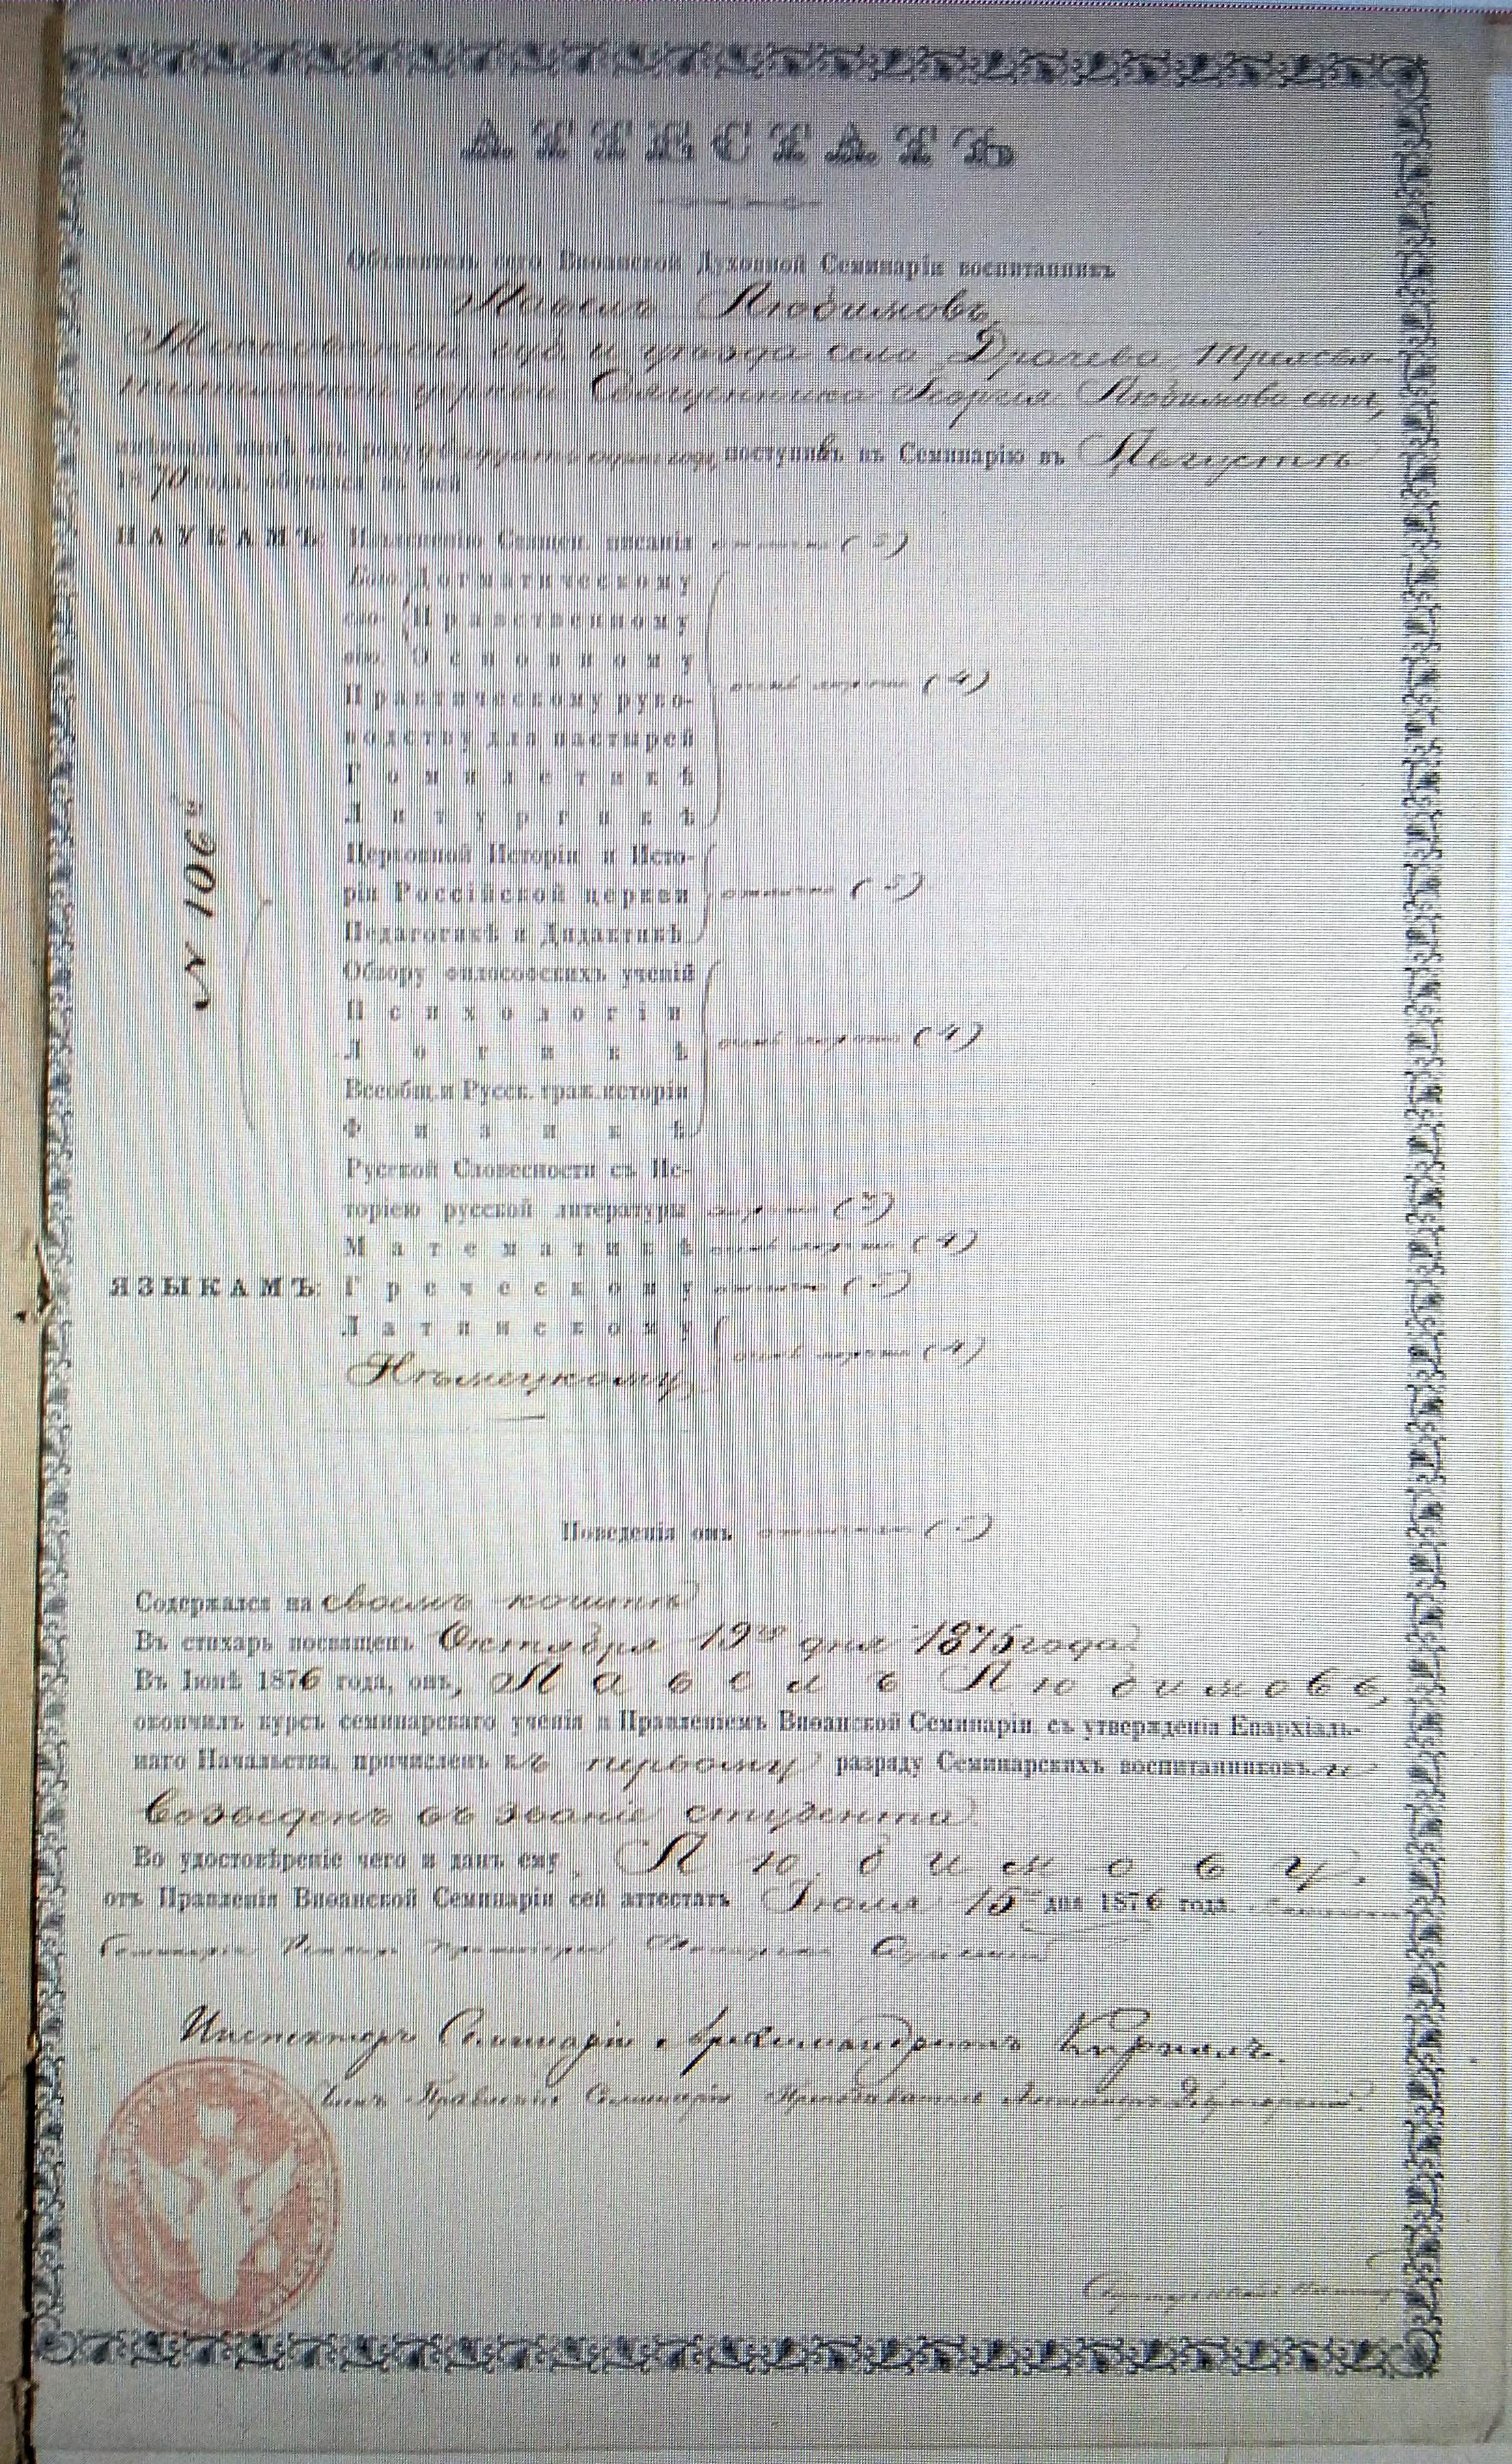 АТТЕСТАТЪ
Объявитель сего Виѳанской Духовной Семинаріи воспитанникъ
Павелъ Любимовъ,
Московской губ. и уѣзда села Драчева, Трехсвя-
тительской церкви Священника Георгія Любимова сынъ,
имѣющій нынѣ отъ роду поступивъ въ Семинарію въ Августѣ
1870 года, обучался въ ней
НАУКАМЪ: Изъясненію Священ. писанія отлично (5)
Бого- Догматическому
сло- Нравственному
вію. Основному
Практическому руко- очень хорошо (4)
водству для пастырей
Гомилетикѣ
Литургикѣ
№ 106й
Церковной Исторіи и Исто-
ріи Россійской церкви отлично (5)
Педагогикѣ и Дидактикѣ
Обзору философскихъ ученій
Психологіи
Логикѣ очень хорошо (4)
Всеобщ. и Русск. граж. исторіи
Физикѣ
Русской Словесности съ Ис-
торіею русской литературы хорошо (3)
Математикѣ очень хорошо (4)
ЯЗЫКАМЪ: Греческому отлично (5)
Латинскому
Нѣмецкому очень хорошо (4)
Поведенія онъ отличнаго (5)
Содержался на своемъ коштѣ
Въ стихарь посвященъ Октября 19го дня 1875 года.
Въ Іюнѣ 1876 года, онъ, Павелъ Любимовъ,
окончилъ курсъ семинарскаго ученія и Правленіемъ Виѳанской Семинаріи, съ утвержденія Епархіаль-
наго Начальства, причисленъ къ первому разряду Семинарскихъ воспитанниковъ и
возведенъ въ званіе студента.
Во удостовѣреніе чего и данъ ему, Любимову,
отъ Правленія Виѳанской Семинаріи сей аттестатъ Іюля 15 дня 1876 года.
Семинаріи Ректоръ
Инспекторъ Семинаріи Архимандритъ Кириллъ.
Членъ Правленія Семинаріи Преподаватель